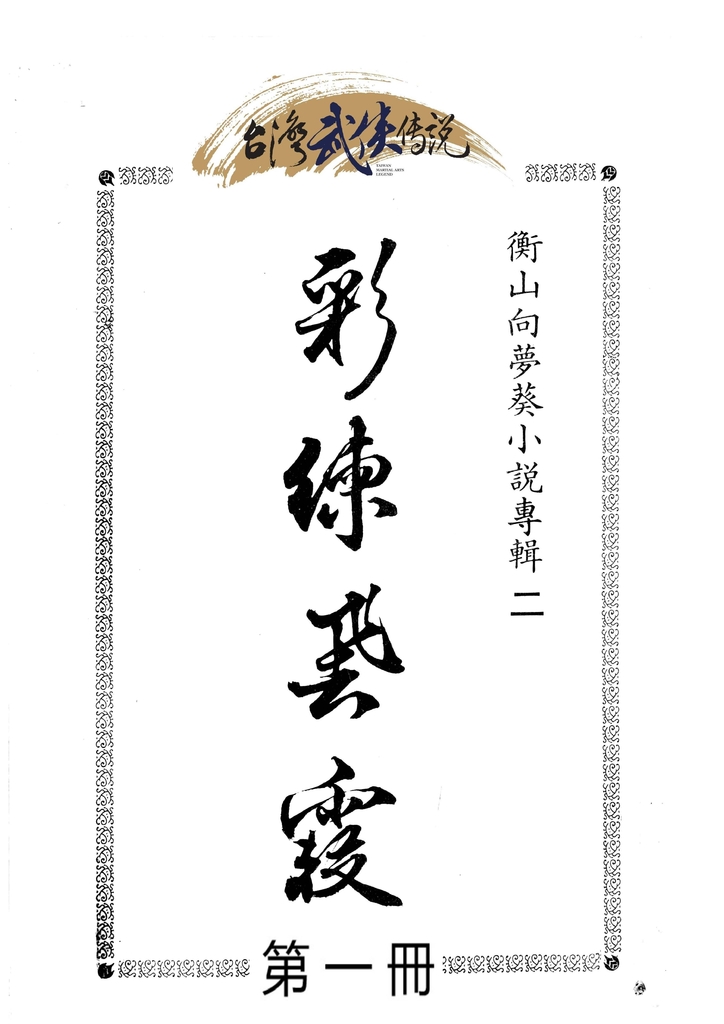 台灣武俠傳說
TAIWAN
MARTIAL ARTS
LEGEND
衡山向夢葵小説專輯 二
彩練飛霞
第一冊